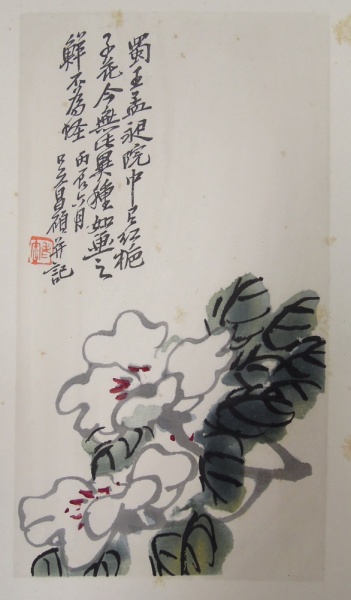 蜀王孟昶院中有红梔
子花今無此異種如畫之
鮮不為怪 丙辰六月
吳昌碩并記